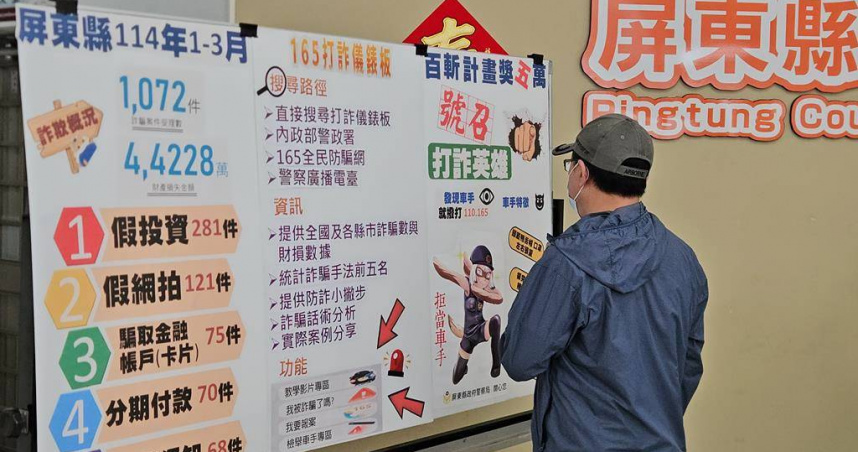 屏東縣114年1-3月
詐欺概況
1,072件
詐騙案件受理數
4,4228萬
財產損失金額
1 假投資281件
2 假網拍121件
3 騙取金融帳戶(卡片) 75件
4 分期付款70件
68件
165打詐儀錶板
搜尋路徑
➤直接搜尋打詐儀錶板
➤內政部警政署
➤165全民防騙網
➤警察廣播電臺
資訊
➤提供全國及各縣市詐騙數與
財損數據
➤統計詐騙手法前五名
➤提供防詐小撇步
➤詐騙話術分析
➤實際案例分享
功能
教學影片專區
我被詐騙了嗎?
我要報案
檢舉車手專區
百斬計畫獎五萬
號召
打詐英雄
發現車手
就撥打110.165
車手特徵
拒當車手
屏東縣政府警察局 關心您
屏東縣
Pingtung Cou
AIRBORNE